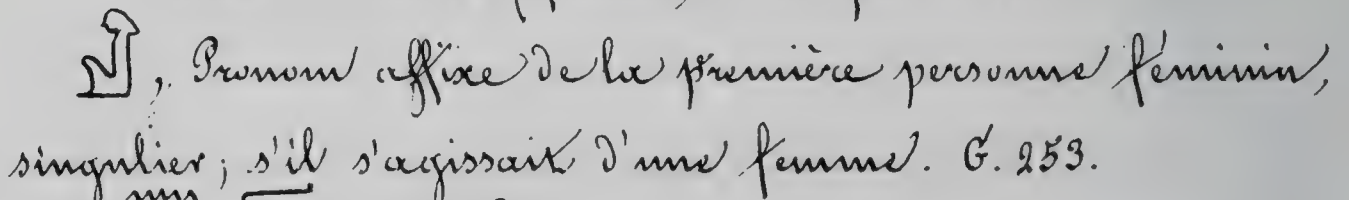 𓁐, Pronom affixe de la première personne féminin,
singulier; s'il s'agissait d'une femme. G. 253.